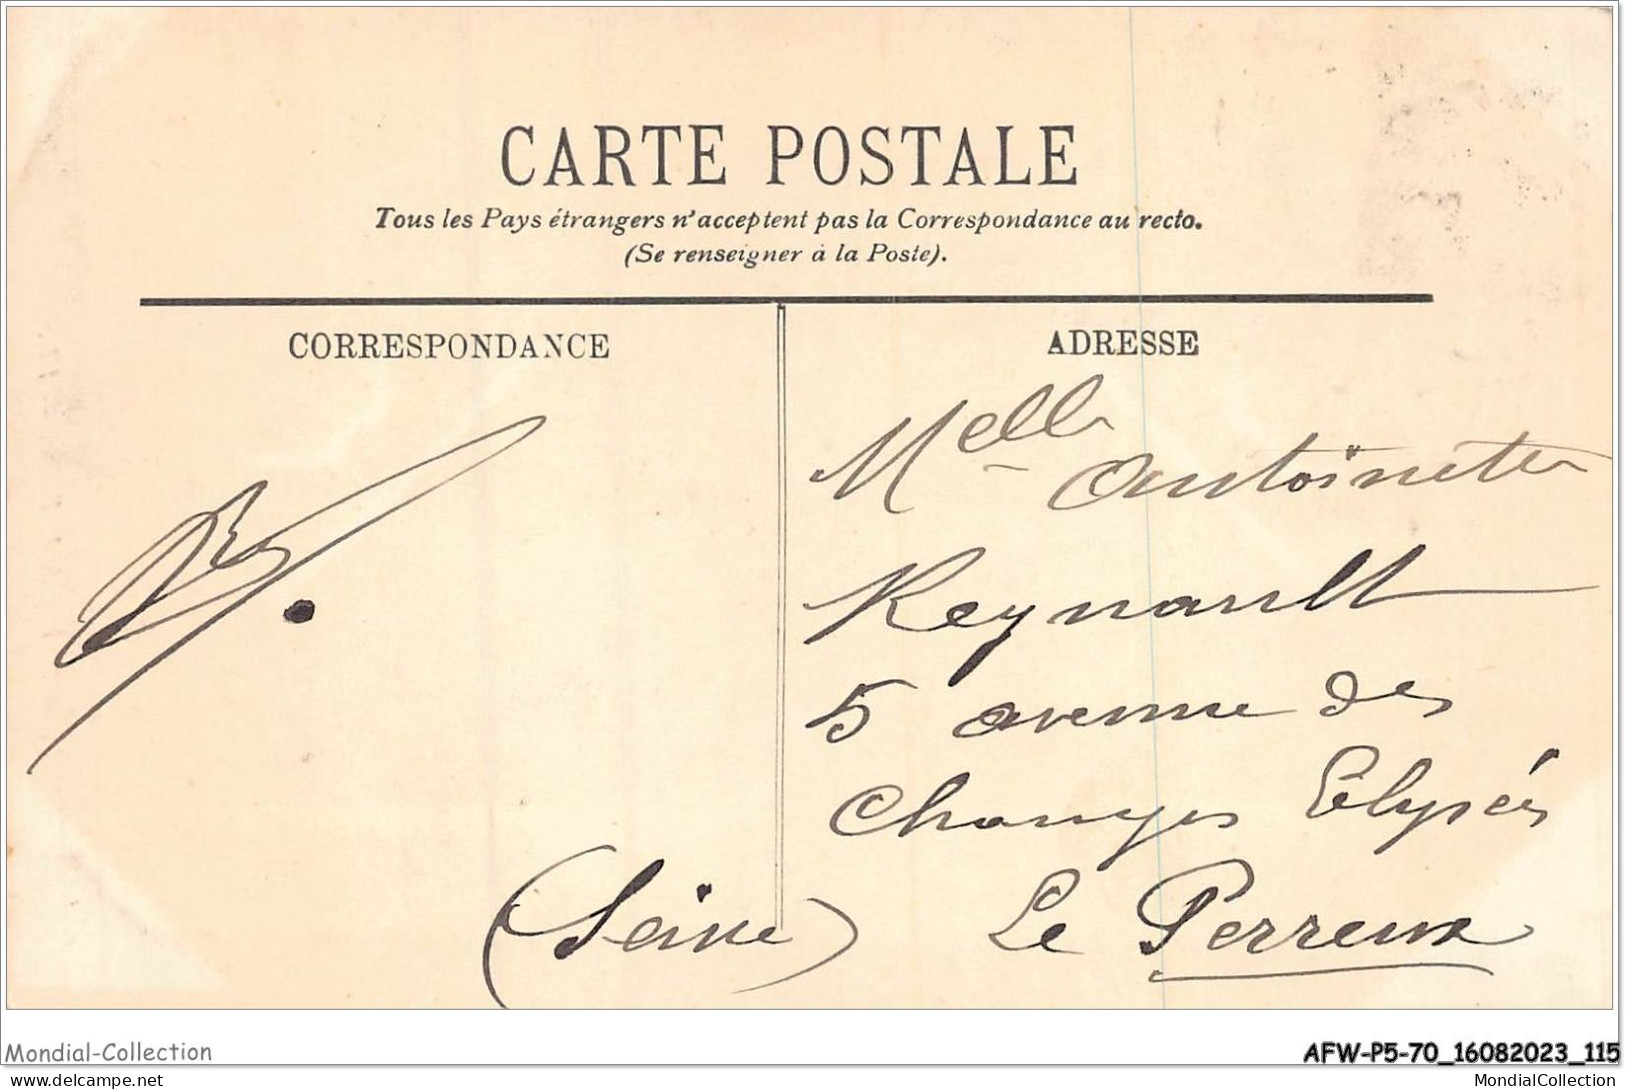 CARTE POSTALE
Tous les Pays étrangers n'acceptent pas la Correspondance au recto.
(Se renseigner à la Poste).
CORRESPONDANCE
ADRESSE
Melle Antoinette
Reynault
5 avenue des
Champs Elysées
Le Perreux
(Seine)
Mondial-Collection
AFW-P5-70_16082023_115
www.delcampe.net
MondialCollection